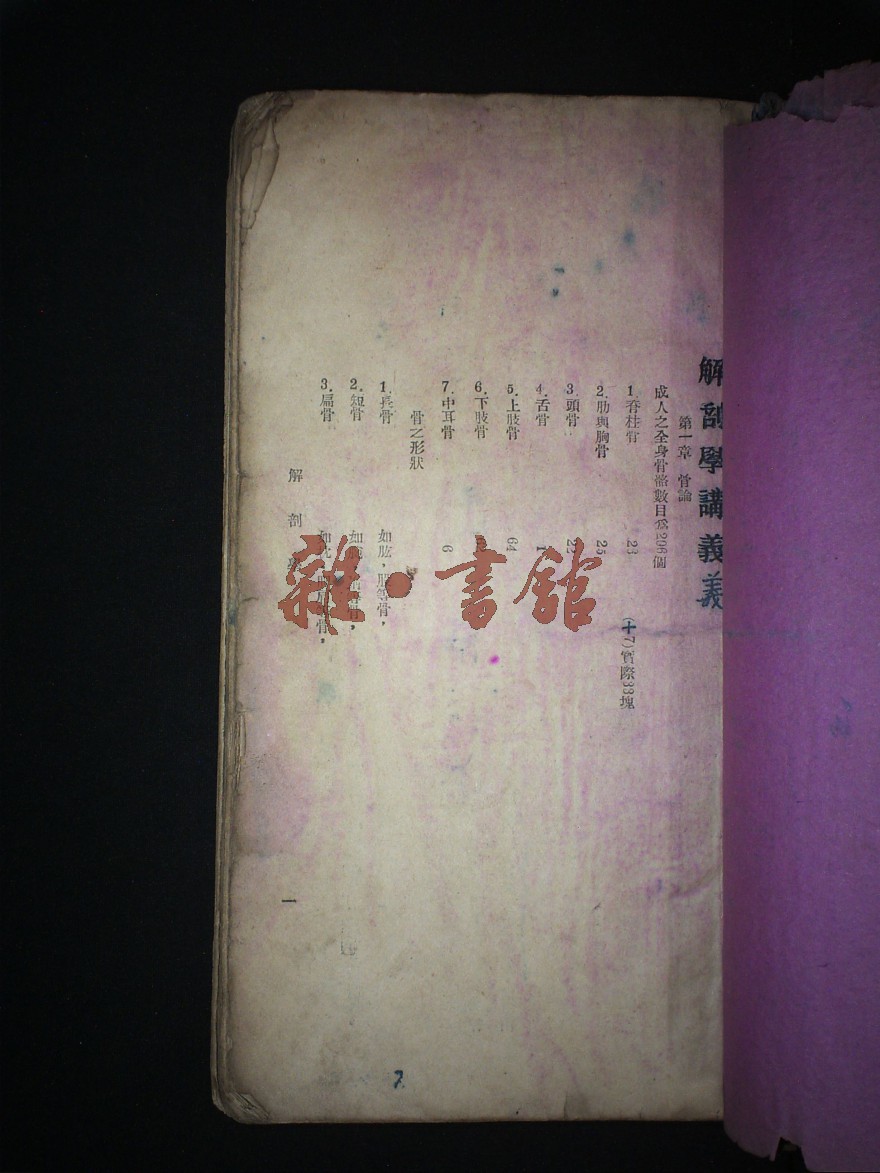 解剖學講義義
第一章 骨論
成人之全身骨骼數目爲206個
1.脊柱骨 23 (十7)實際33塊
2.肋與胸骨 25
3.頭骨 22
4.舌骨 1
5.上肢骨 64
6.下肢骨
7.中耳骨 6
骨之形狀
1.長骨 如肱，
2.短骨 如
3.扁骨 如
解剖學
一
7
雜·書館